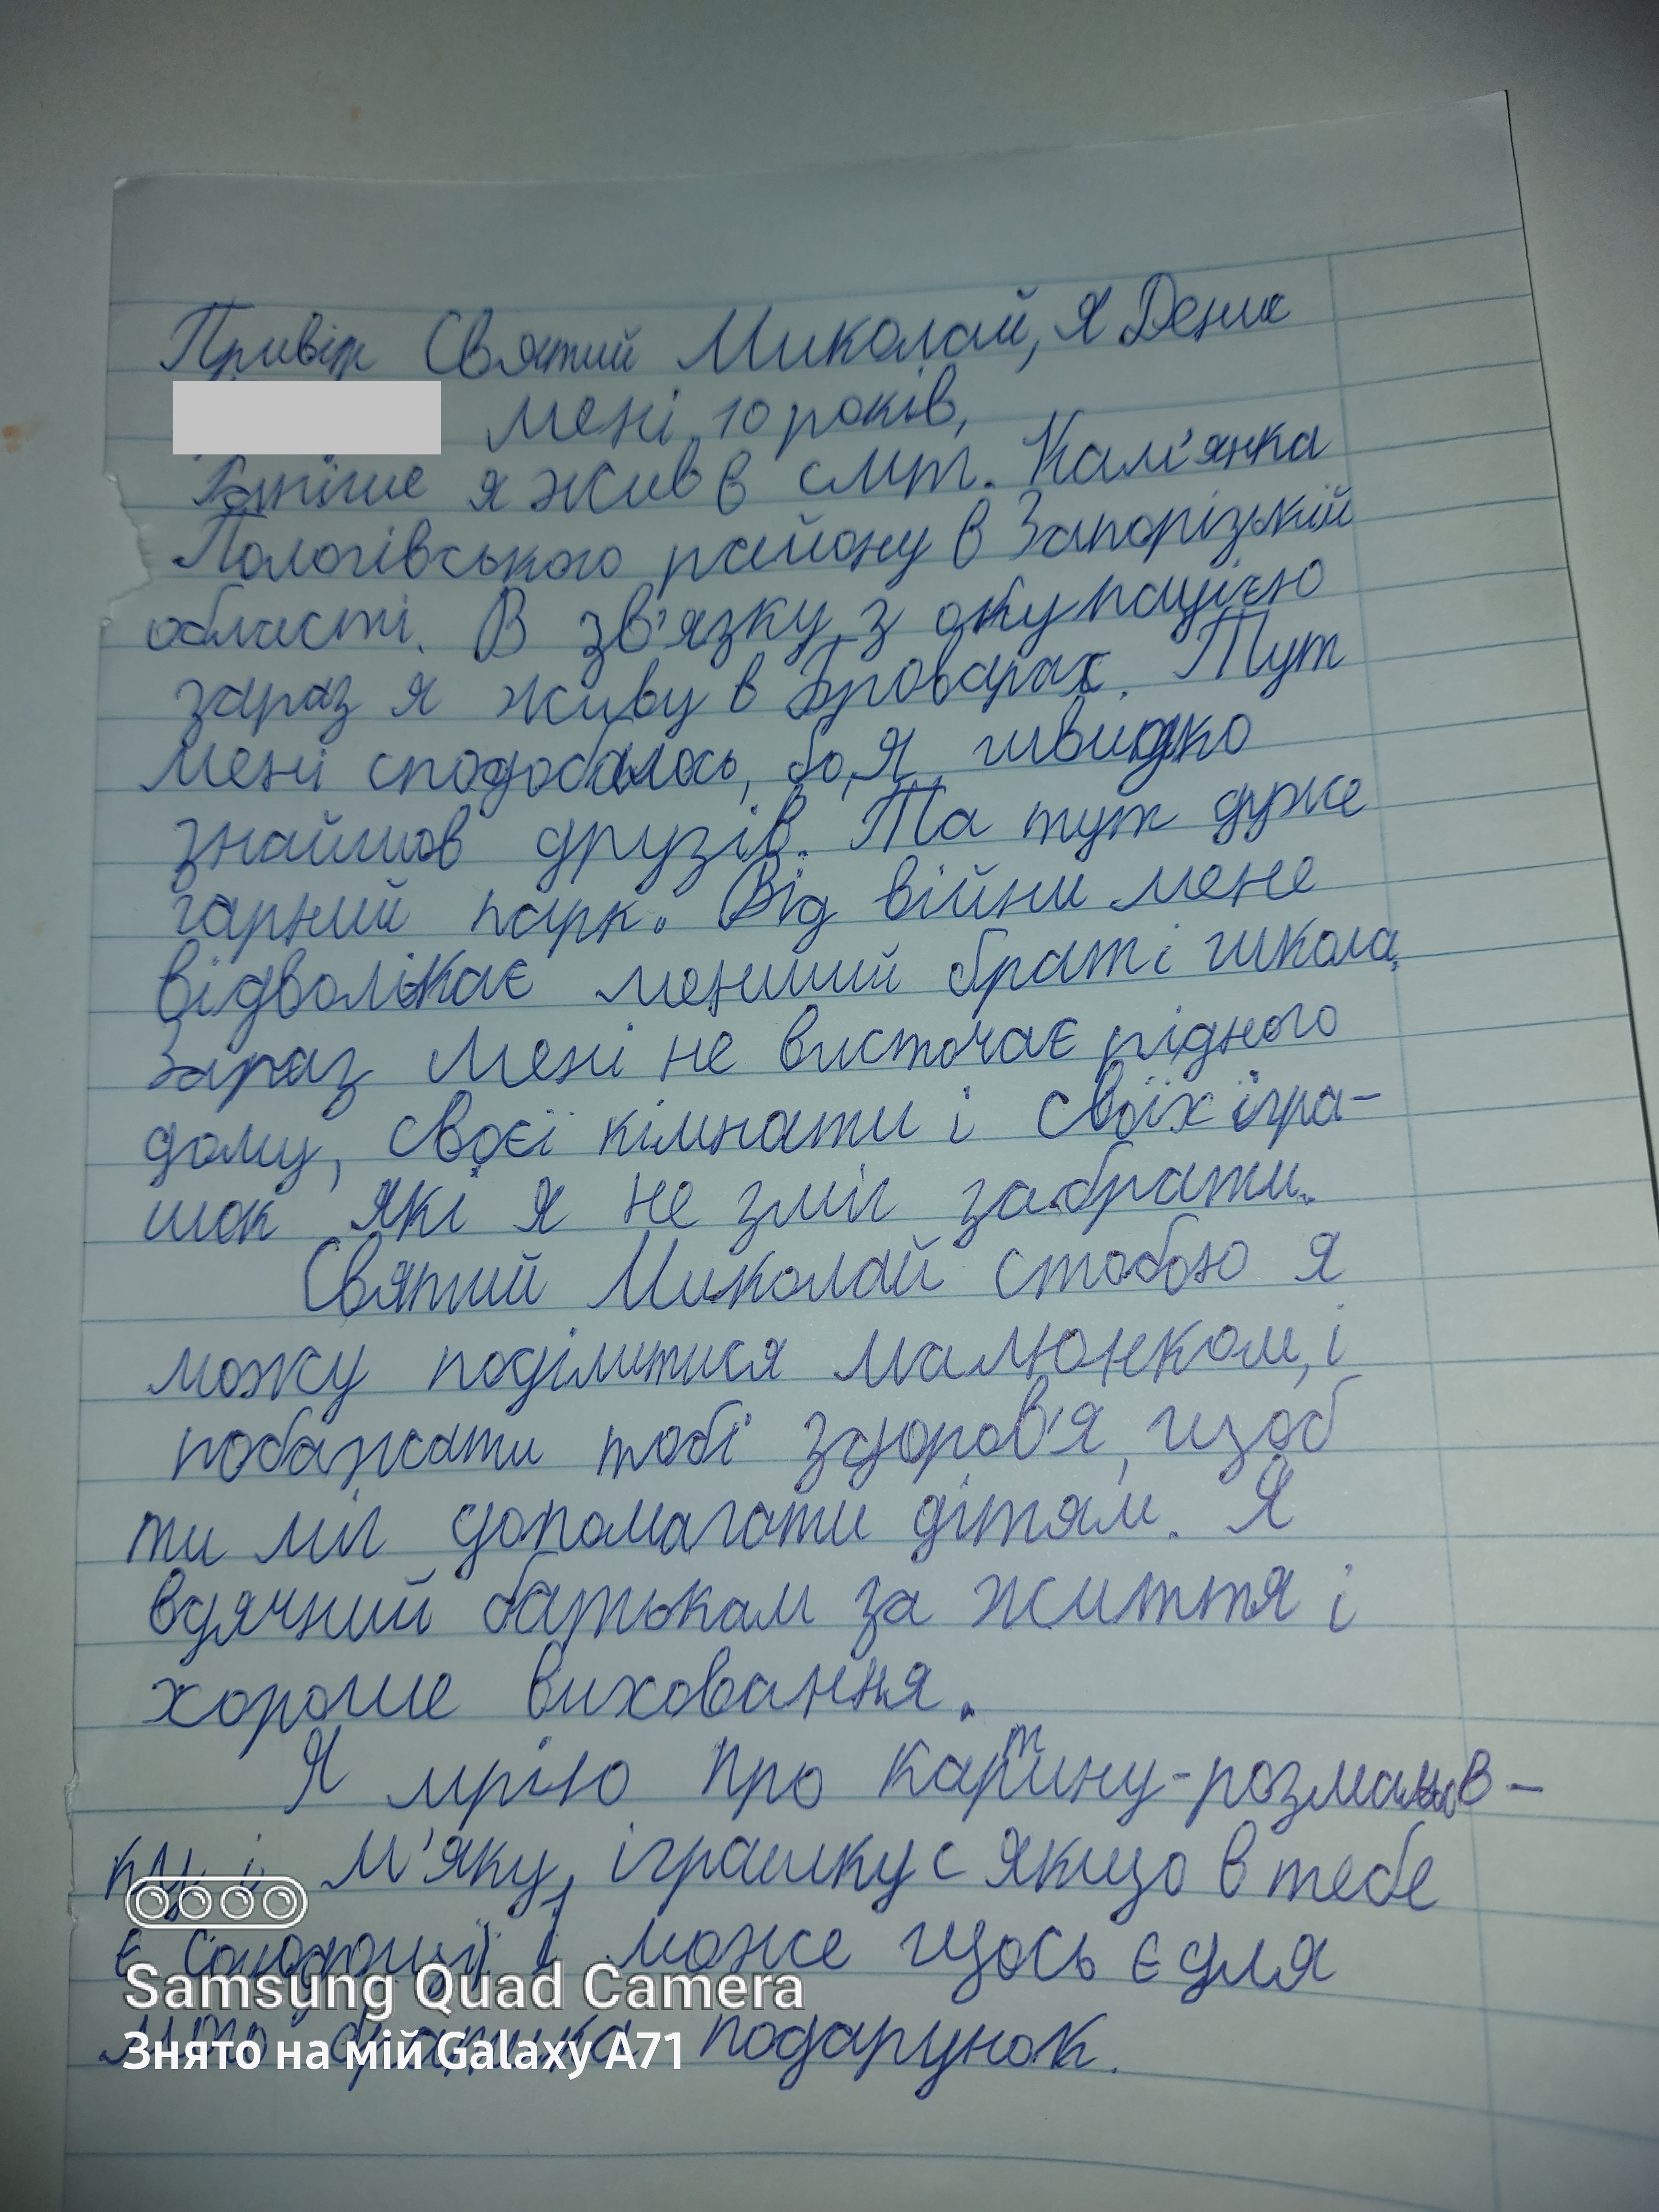 Привіт Святий Миколай, я Денис
мені 10 років,
Раніше я жив в смт. Кам'янка
Пологівського району в Запорізькій
області. В зв'язку з окупацією
зараз я живу в Броварах. Тут
мені сподобалось, бо я швидко
знайшов друзів. Та тут дуже
гарний парк. Від війни мене
відволікає менший брат і школа,
Зараз мені не вистачає рідного
дому, своєї кімнати і своїх ігра-
шок які я не зміг забрати.
Святий Миколай стобою я
можу поділитися малюнком, і
побажати тобі здоров'я, щоб
ти міг допомагати дітям. Я
вдячний батькам за життя і
хороше виховання.
Я мрію про картину-розмальов-
ку і м'яку іграшку якщо в тебе
є солодощі і може щось є для
мого братика подарунок.
Samsung Quad Camera
Знято на мій Galaxy A71